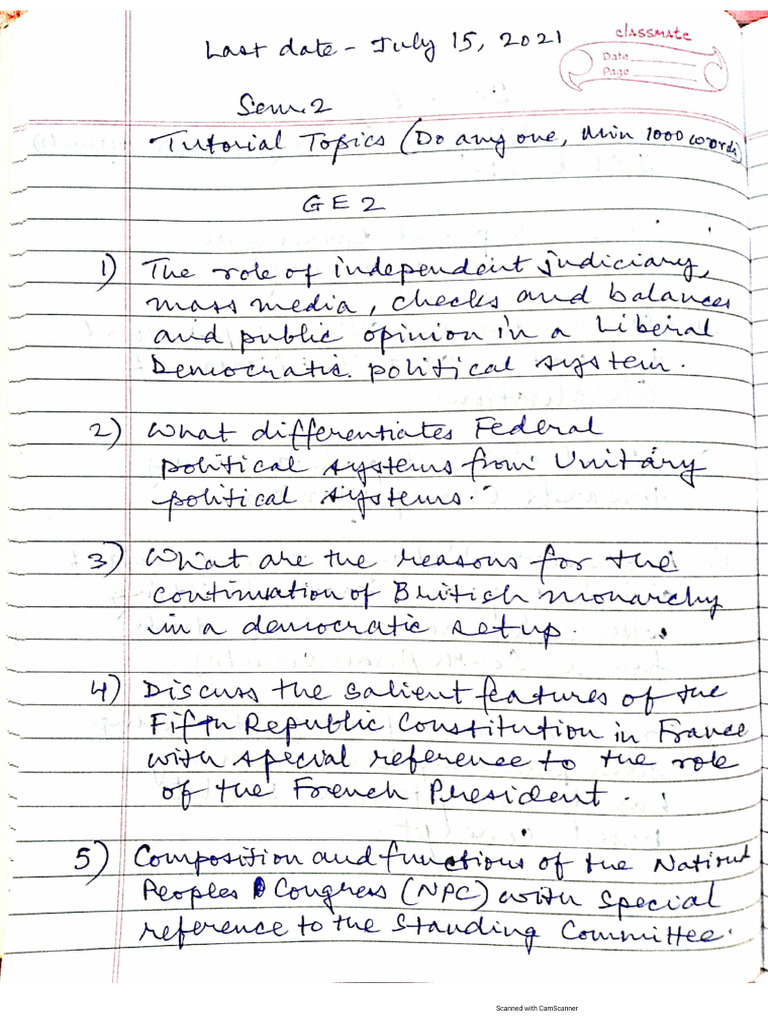 Last date - July 15, 2021
classmate
Date
Page
Sem. 2
Tutorial Topics (Do any one, Min 1000 words)
GE 2
1) The role of independent judiciary,
mass media, checks and balances
and public opinion in a Liberal
Democratic political system.
2) What differentiates Federal
political systems from Unitary
political systems.
3) What are the reasons for the
continuation of British monarchy
in a democratic setup.
4) Discuss the salient features of the
Fifth Republic Constitution in France
with special reference to the role
of the French President.
5) Composition and functions of the National
Peoples Congress (NPC) with special
reference to the Standing Committee.
Scanned with CamScanner